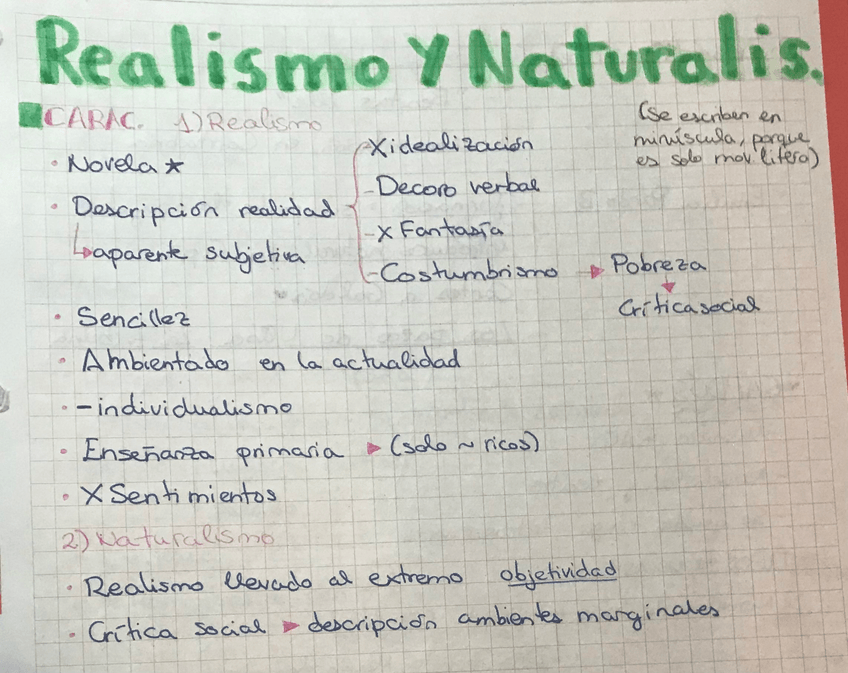 Realismo Y Naturalis.
CARAC. 1) Realismo
(se escriben en
minúscula, porque
es solo mov. litera)
· Novela *
· Descripción realidad
↳ aparente subjetiva
- X idealización
- Decoro verbal
- X Fantasía
- Costumbrismo ▸ Pobreza
▾
Crítica social
· Sencillez
· Ambientado en la actualidad
· - individualismo
· Enseñanza primaria ▸ (solo ~ ricos)
· X Sentimientos
2) Naturalismo
· Realismo llevado al extremo objetividad
· Crítica social ▸ descripción ambientes marginales